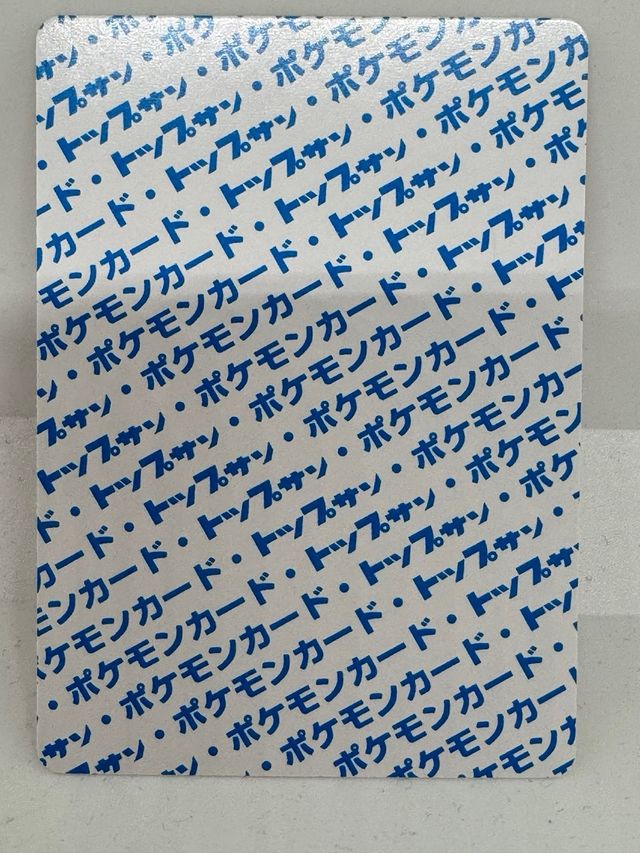 サン・ポケ
プサン・ポケモ
・トップサン・ポケモンカ
ード・トップサン・ポケモンカー
カード・トップサン・ポケモンカー
モンカード・トップサン・ポケモ
ポケモンカード・トップサン・ポケ
・ポケモンカード・トップサン・
プサン・ポケモンカード・トップサ
トップサン・ポケモンカード・ト
・トップサン・ポケモンカード・
ド・トップサン・ポケモンカード
カード・トップサン・ポケモンカー
モンカード・トップサン・ポケモ
ケモンカード・トップサン・ポケ
・ポケモンカード・トップサン・
サン・ポケモンカード・トップサ
サン・ポケモンカード・ト
ポケモンカード・
ポケモン